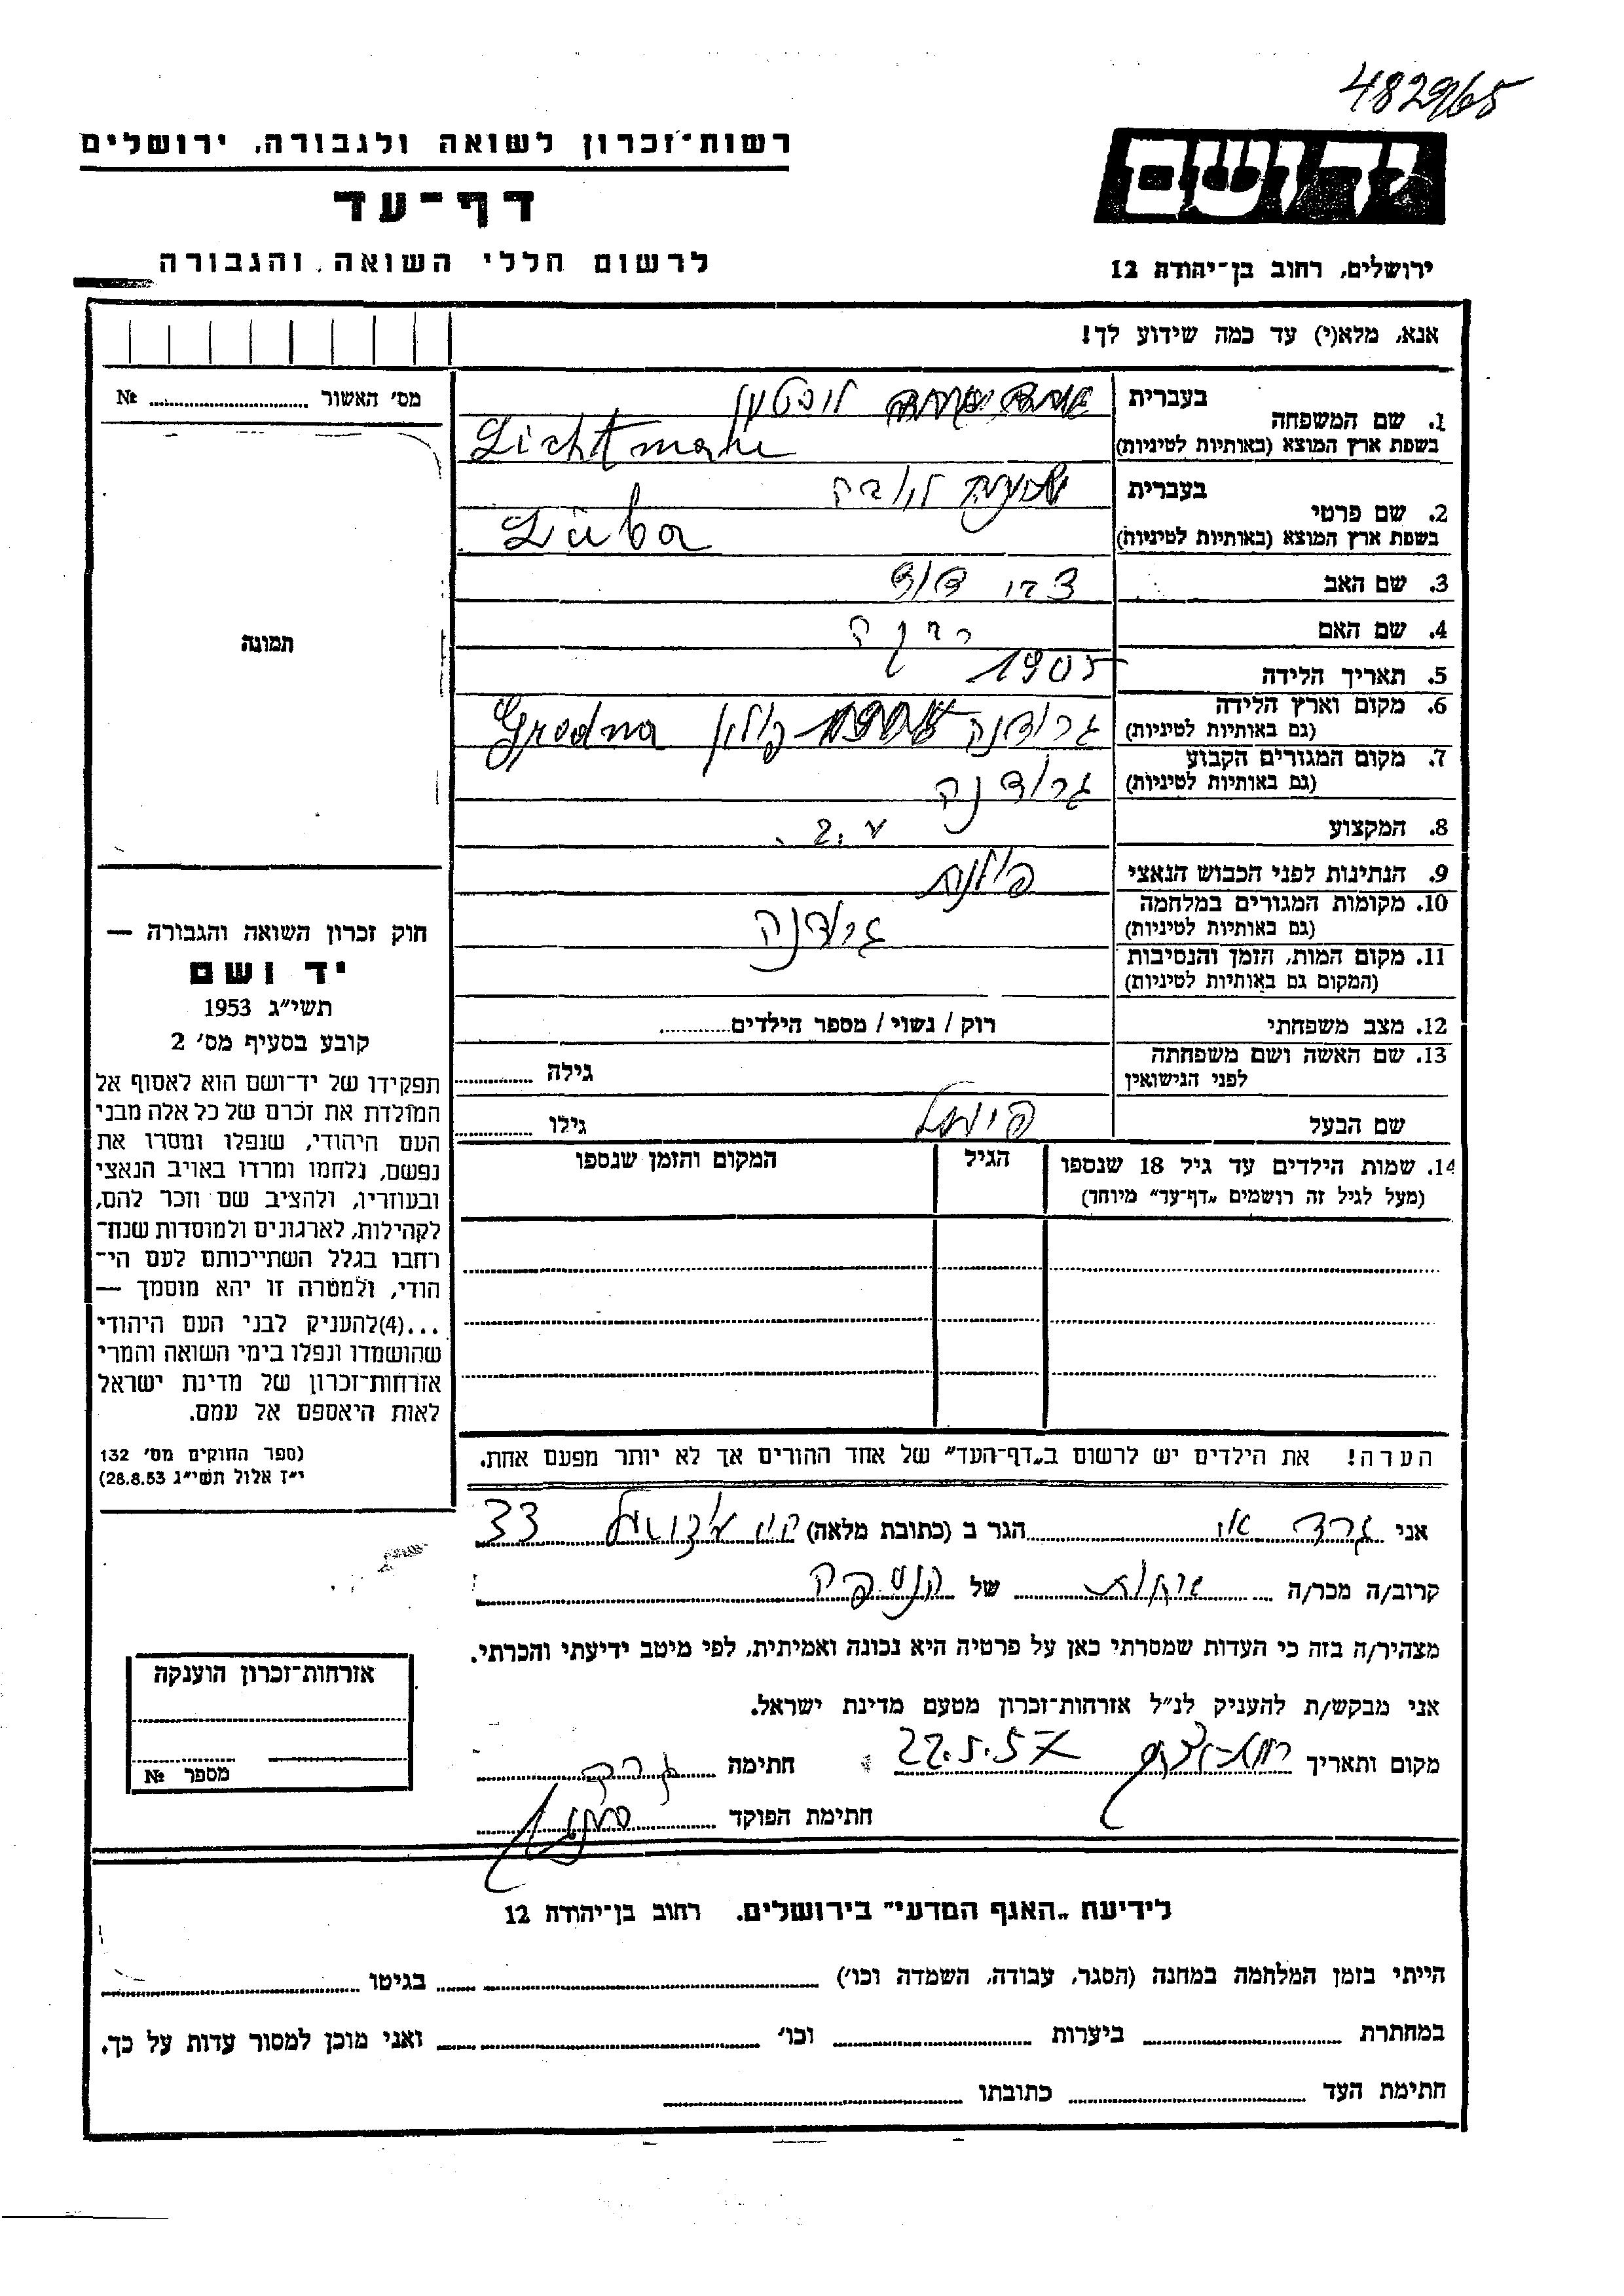 482965
רשות־זכרון לשואה ולגבורה, ירושלים
דף־עד
לרשום חללי השואה והגבורה
יד ושם
ירושלים, רחוב בן־יהודה 12
אנא, מלא(י) עד כמה שידוע לך!
מס׳ האשור № 
1. שם המשפחה בעברית
בשפת ארץ המוצא (באותיות לטיניות) Lichtmann
2. שם פרטי בעברית ליובה
בשפת ארץ המוצא (באותיות לטיניות) Luba
3. שם האב דוד
4. שם האם
5. תאריך הלידה 1905
6. מקום וארץ הלידה (גם באותיות לטיניות) גרודנה פולין Grodna
7. מקום המגורים הקבוע (גם באותיות לטיניות) גרודנה
8. המקצוע
9. הנתינות לפני הכבוש הנאצי פולנית
10. מקומות המגורים במלחמה (גם באותיות לטיניות) גרודנה
11. מקום המות, הזמן והנסיבות (המקום גם באותיות לטיניות)
12. מצב משפחתי רוק / נשוי / מספר הילדים
13. שם האשה ושם משפחתה לפני הנישואין גילה
שם הבעל גילו
14. שמות הילדים עד גיל 18 שנספו (מעל לגיל זה רושמים „דף־עד״ מיוחד) הגיל המקום והזמן שנספו
תמונה
חוק זכרון השואה והגבורה —
יד ושם
תשי״ג 1953
קובע בסעיף מס׳ 2
תפקידו של יד־ושם הוא לאסוף אל
המולדת את זכרם של כל אלה מבני
העם היהודי, שנפלו ומסרו את
נפשם, נלחמו ומרדו באויב הנאצי
ובעוזריו, ולהציב שם וזכר להם,
לקהילות, לארגונים ולמוסדות שנח־
רחבו בגלל השתייכותם לעם הי־
הודי, ולמטרה זו יהא מוסמך —
...(4)להעניק לבני העם היהודי
שהושמדו ונפלו בימי השואה והמרי
אזרחות־זכרון של מדינת ישראל
לאות היאספם אל עמם.
(ספר החוקים מס׳ 132
י״ז אלול תשי״ג 28.8.53)
הערה! את הילדים יש לרשום ב„דף־העד״ של אחד ההורים אך לא יותר מפעם אחת.
אני הגר ב (כתובת מלאה) 33
קרוב/ה מכר/ה אחות של הנספה
מצהיר/ה בזה כי העדות שמסרתי כאן על פרטיה היא נכונה ואמיתית, לפי מיטב ידיעתי והכרתי.
אני מבקש/ת להעניק לנ״ל אזרחות־זכרון מטעם מדינת ישראל.
מקום ותאריך 22.5.57 חתימה
חתימת הפוקד
אזרחות־זכרון הוענקה
מספר №
לידיעת „האגף המדעי״ בירושלים. רחוב בן־יהודה 12
הייתי בזמן המלחמה במחנה (הסגר, עבודה, השמדה וכו׳) בגיטו
במחתרת ביערות וכו׳ ואני מוכן למסור עדות על כך.
חתימת העד כתובתו